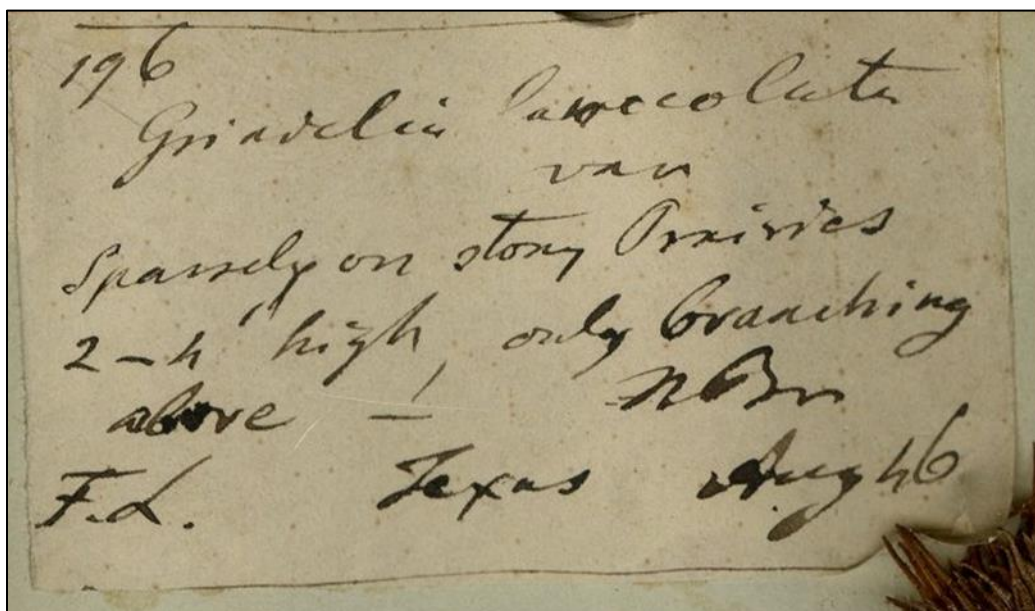 196
Grindelia lanceolata
var
Sparsely on stony Prairies
2–4' high, only branching
above –
F.L. Texas Aug 46